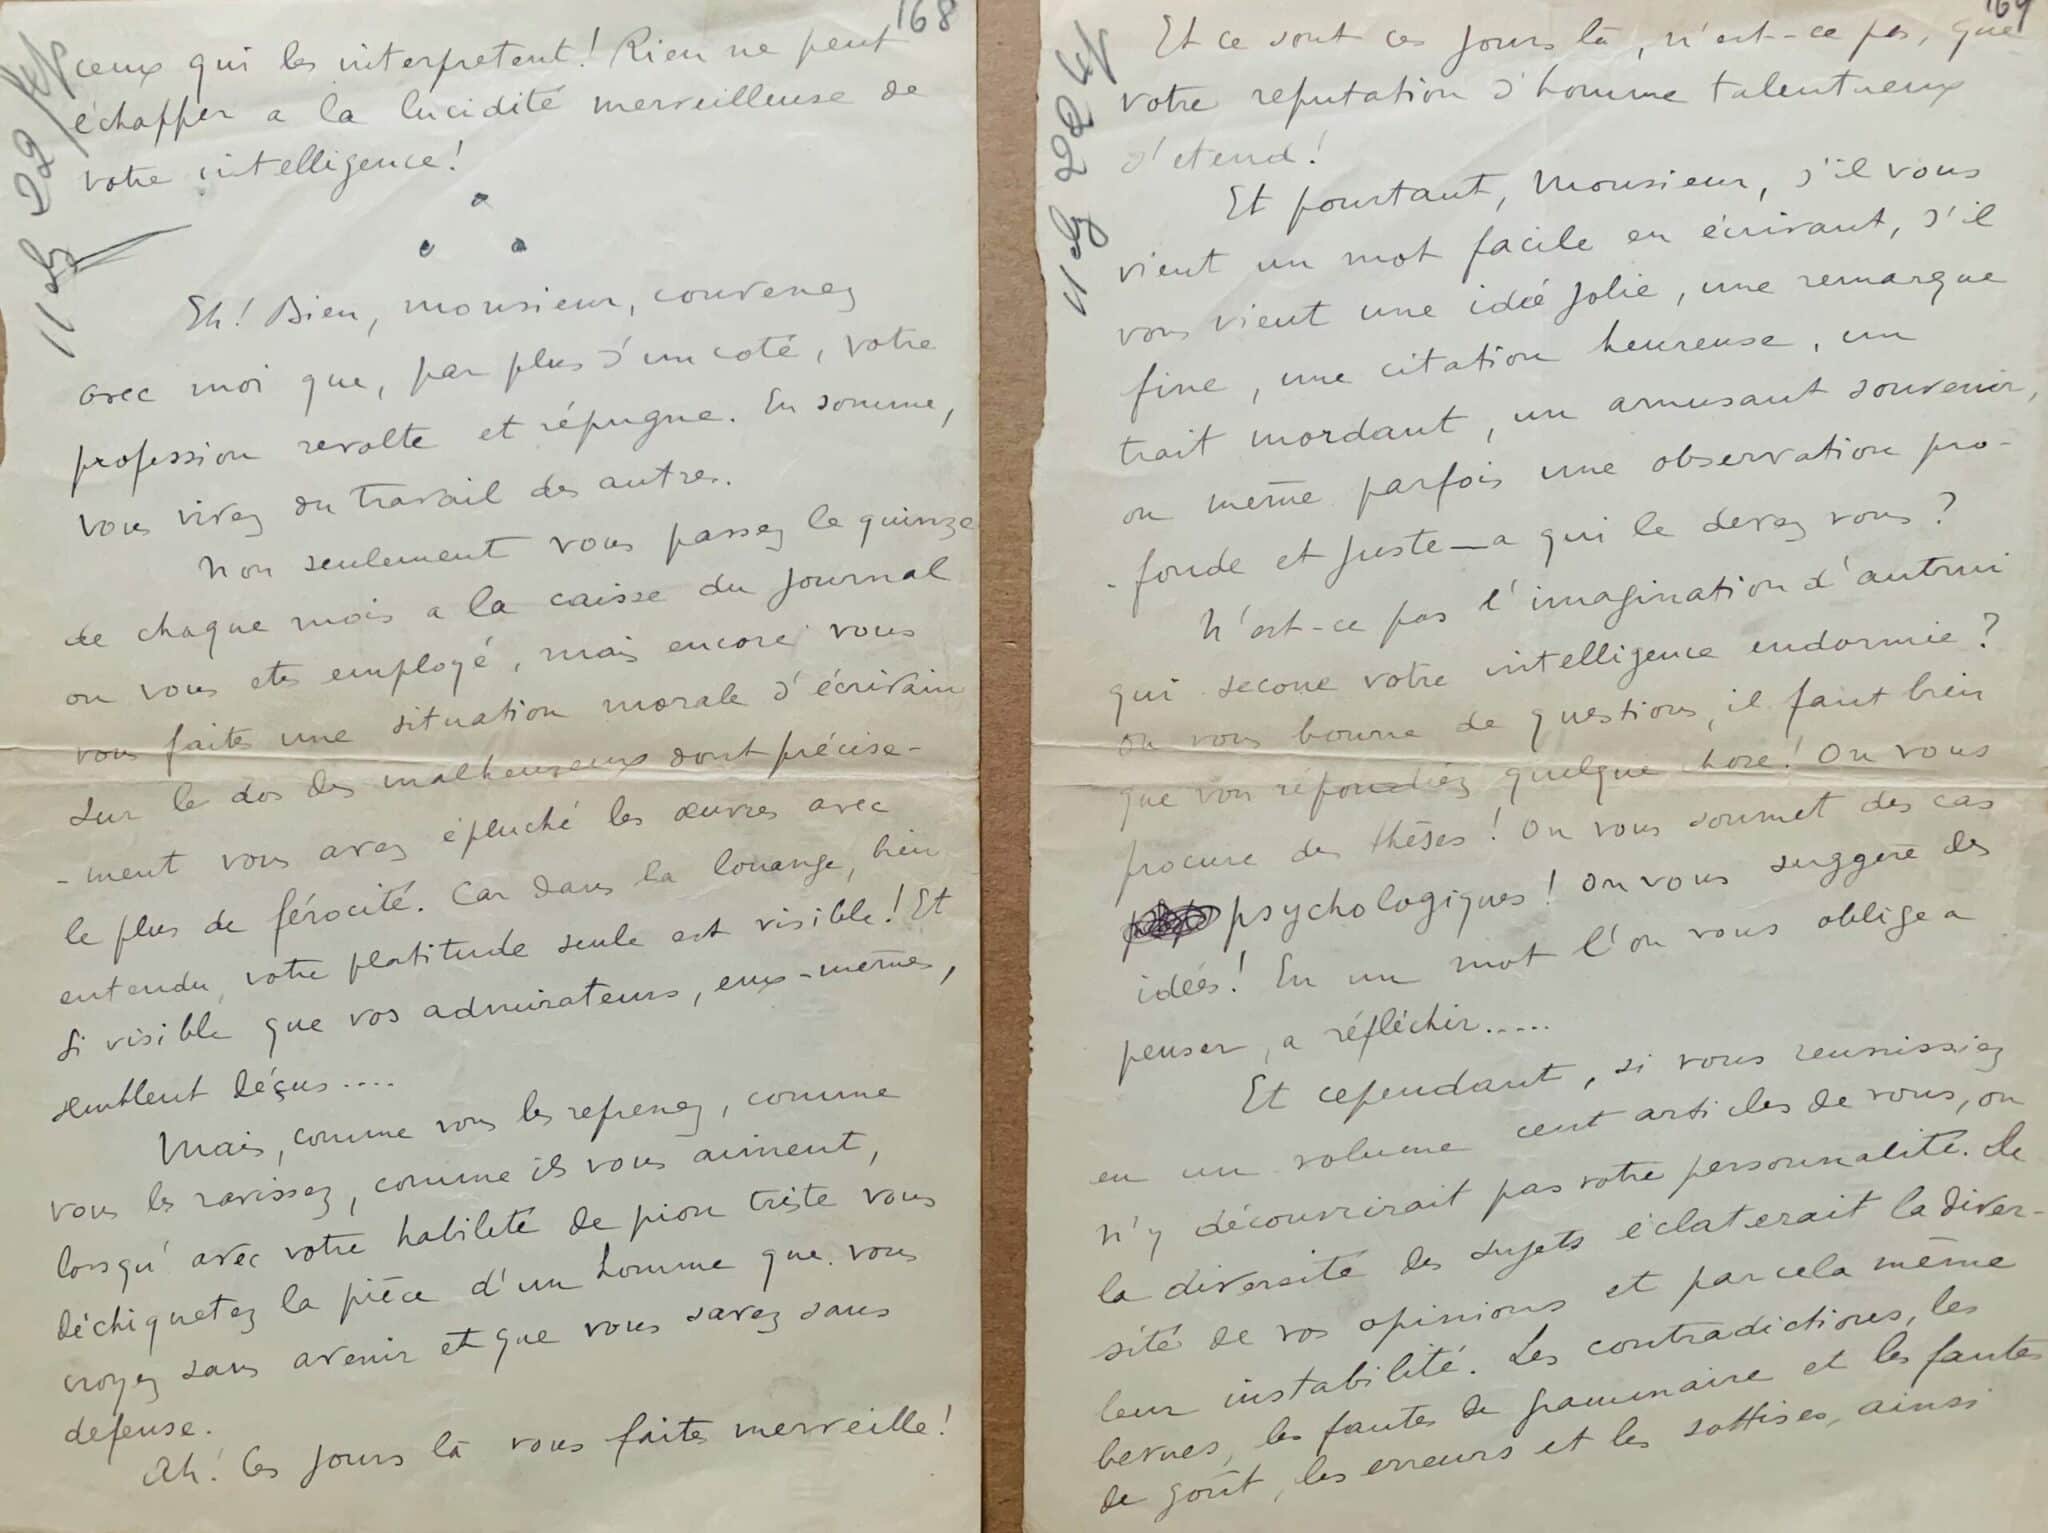 168
ceux qui les interpretent! Rien ne peut
échapper a la lucidité merveilleuse de
votre intelligence!
Eh! Bien, monsieur, convenez
avec moi que, par plus d'un coté, votre
profession revolte et répugne. En somme,
vous vivez du travail des autres.
Non seulement vous passez le quinze
de chaque mois a la caisse du journal
ou vous etes employé, mais encore vous
vous faites une situation morale d'écrivain
sur le dos des malheureux dont précise-
-ment vous avez épluché les œuvres avec
le plus de férocité. Car dans la louange, bien
entendu, votre platitude seule est visible! Et
si visible que vos admirateurs, eux-mêmes,
semblent déçus....
Mais, comme vous les reprenez, comme
vous les ravissez, comme ils vous aiment,
lorsqu'avec votre habileté de pion triste vous
déchiquetez la pièce d'un homme que vous
croyez sans avenir et que vous savez sans
defense.
Ah! Ces jours là vous faites merveille!
169
Et ce sont ces jours là, n'est-ce pas, que
votre reputation d'homme talentueux
s'etend!
Et pourtant, Monsieur, s'il vous
vient un mot facile en écrivant, s'il
vous vient une idée jolie, une remarque
fine, une citation heureuse, un
trait mordant, un amusant souvenir,
ou même parfois une observation pro-
-fonde et juste—a qui le devez vous?
N'est-ce pas l'imagination d'autrui
qui secoue votre intelligence endormie?
On vous bourre de questions, il faut bien
que vous répondiez quelque chose! On vous
procure des thèses! On vous soumet des cas
psychologiques! On vous suggère des
idées! En un mot l'on vous oblige a
penser, a réfléchir.....
Et cependant, si vous reunissiez
en un volume cent articles de vous, on
n'y découvrirait pas votre personnalité. De
la diversité des sujets éclaterait la diver-
sité de vos opinions et par cela même
leur instabilité. Les contradictions, les
bevues, les fautes de grammaire et les fautes
de goût, les erreurs et les sottises, ainsi